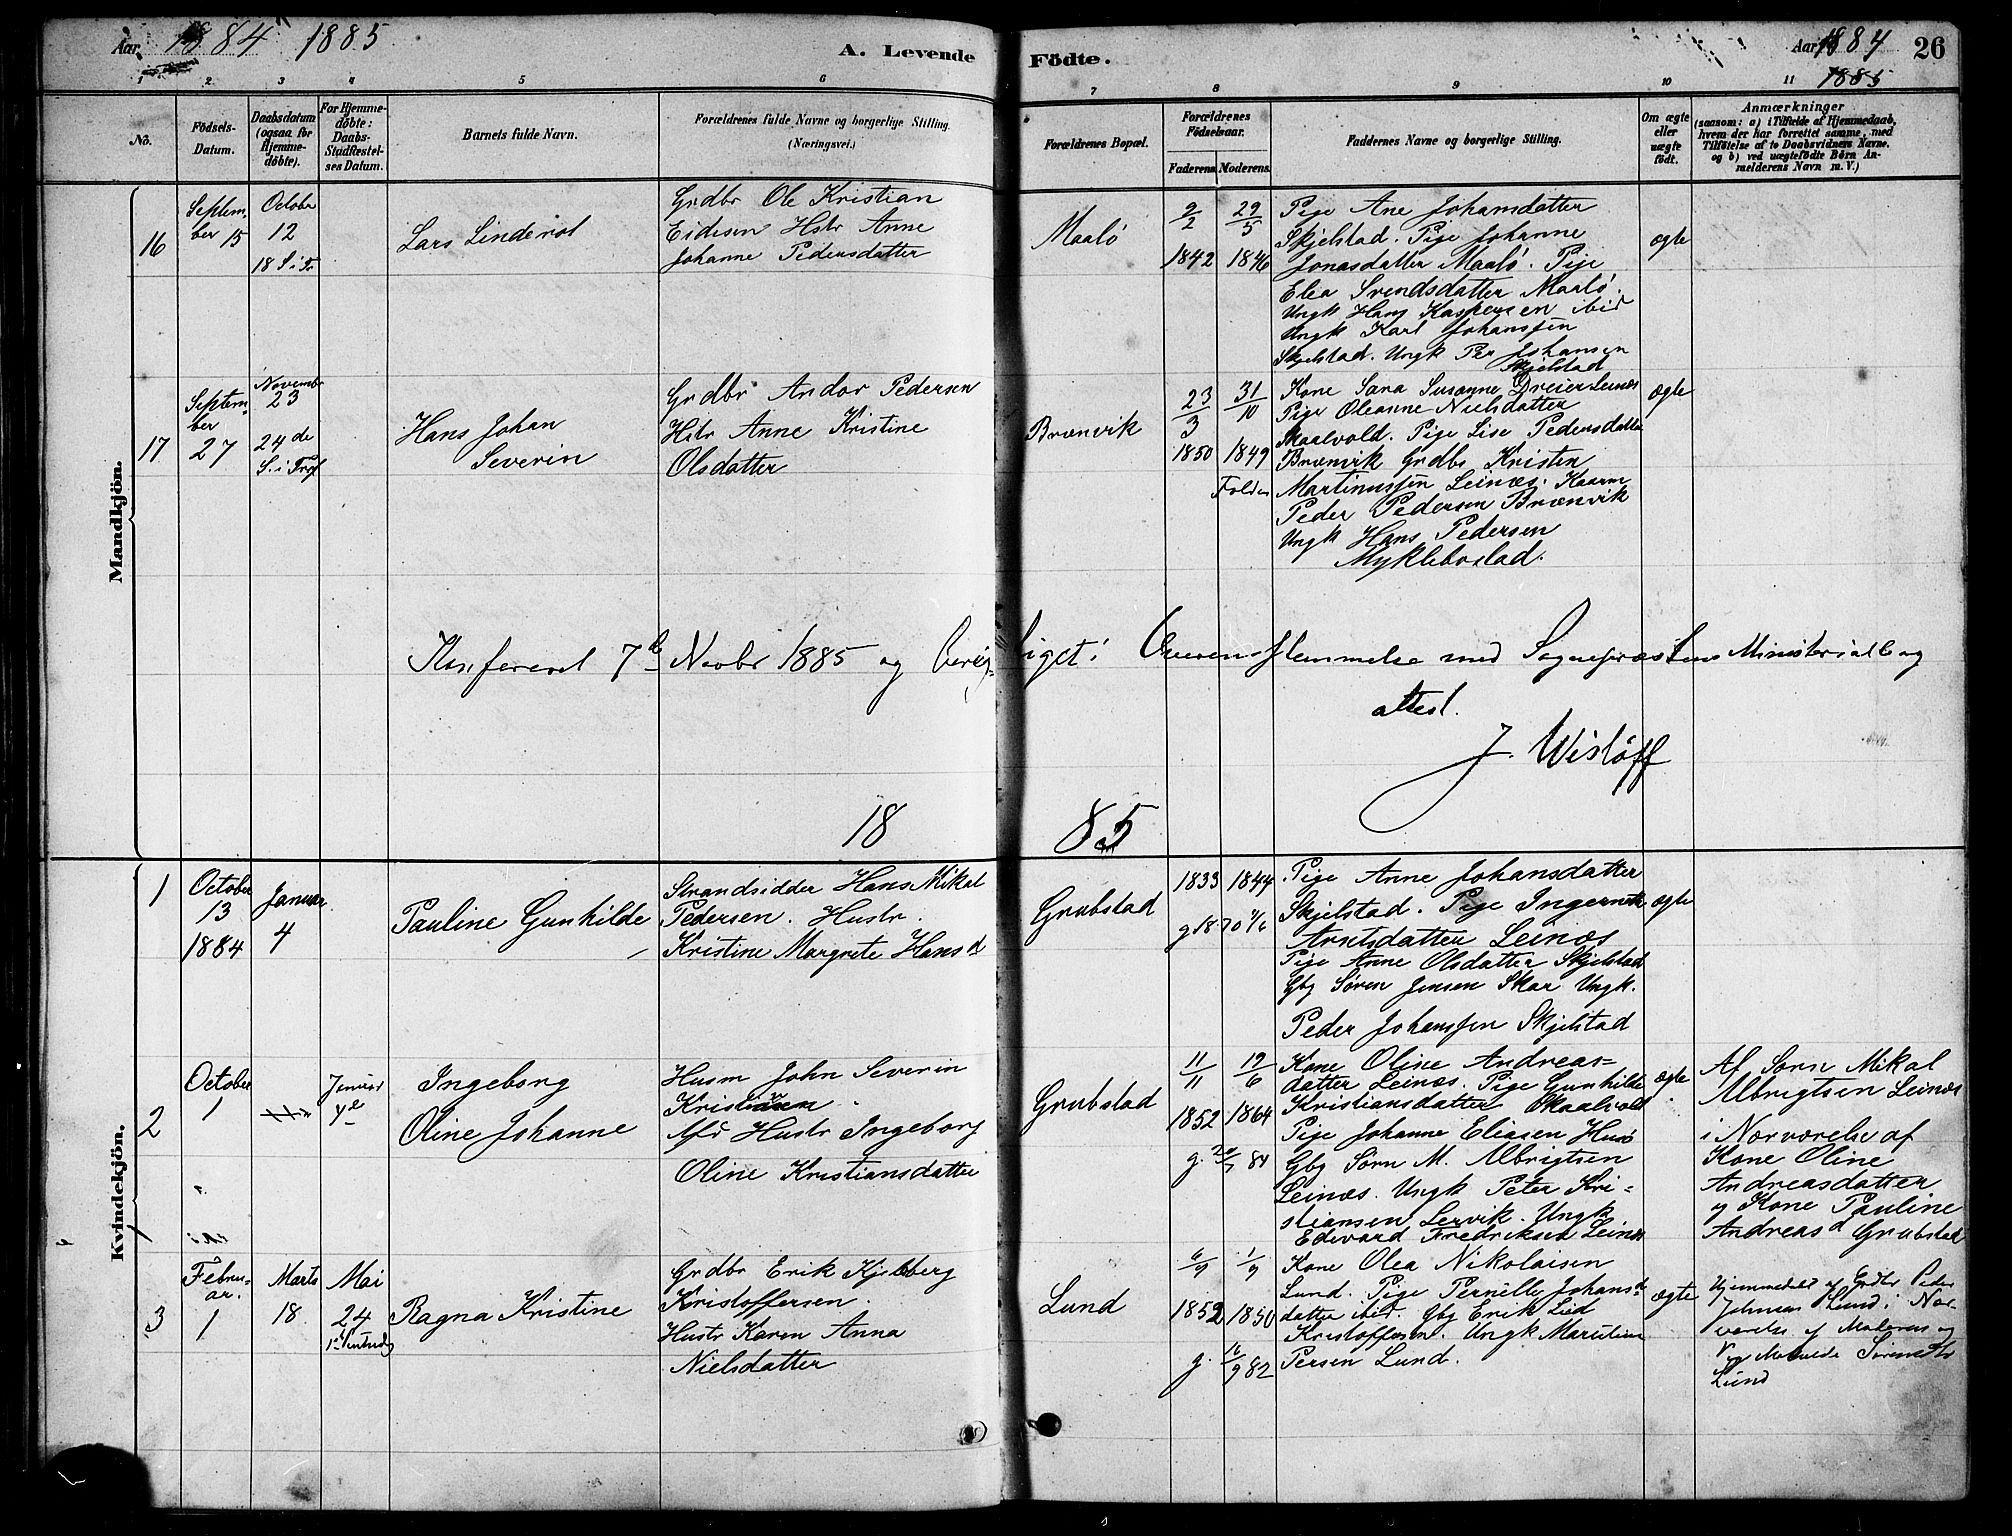 Aar 1884 1885
A. Levende Födte.
Aar 1884
1885
26
1 2 3 4 5 6 7 8 9 10 11
No.
Födsels-Datum.
Daabsdatum (ogsaa for Hjemmedöbte).
For Hjemmedöbte: Daabs-Stadfæstelses Datum.
Barnets fulde Navn.
Forældrenes fulde Navne og borgerlige Stilling. (Næringsvei.)
Forældrenes Bopæl.
Forældrenes Födselsaar.
Faderens. Moderens.
Faddernes Navne og borgerlige Stilling.
Om ægte eller uægte födt.
Anmærkninger
(saasom: a) i Tilfælde af Hjemmedaab, hvem der har forrettet samme, med Tilföielse af to Daabsvidners Navne. og b) ved uægtefödte Börn Anmelderens Navn m. V.)
Mandkjön.
16
September 15
October
12
18 S. i Tr
Lars Linderot
Grdbr Ole Kristian
Eidesen Hstr Anne
Johanne Pedersdatter
Maalö
9/2 1842
29/5 1846
Pige Ane Johansdatter
Skjelstad. Pige Johanne
Jonasdatter Maalö. Pige
Elea Svendsdatter Maalö.
Ungk Hans Kaspersen ibid
Ungk Karl Johanssen
Skjelstad. Ungk Per Johansen
Skjelstad
ægte
17
September
27
Novembr
23
24de
S. i Tref
Hans Johan
Severin
Grdbr Andor Pedersen
Hstr Anne Kristine
Olsdatter
Brænvik
23/3 1850
31/10 1849
Folden
Kone Sara Susanne Dreier Leinæs
Pige Oleanne Nielsdatter
Skaalvold. Pige Lise Pedersdatter
Brænvik Grdbr Kristen
Martinussen Leinæs. Kaarm
Peder Pedersen Brænvik
Ungk Hans Pedersen
Myklebostad.
ægte
Konfereret 7de Novbr 1885 og berigtiget i Overensstemmelse med Sognepræstens Ministerialbog
attest.
J. Wislöff
1885
Kvindekjön.
1
October
13
1884
Januar
4
Pauline Gunhilde
Strandsidder Hans Mikal
Pedersen. Hustr.
Kristine Margrete Hansd
Grubstad
1833 1844
g 1870 /6
Pige Anne Johansdatter
Skjelstad. Pige
Arntsdatter Leinæs
Pige Anne Olsdatter Skjelstad
Gbg Sören Jensen Skar Ungk.
Peder Johanssen Skjelstad
ægte
2
October
1
Januar
4de
Ingeborg
Oline Johanne
Husm John Severin
Kristiansen
Hustr Ingeborg
Oline Kristiansdatter
Grubstad
11/11 1852
19/6 1864
g. 84
Kone Oline Andreas=
datter Leinæs. Pige Gunhilde
Kristiansdatter Skaalvold
Pige Johanne Eliasen Husö
Gbg Sörn M. Albrigtsen
Leinæs. Ungk Peter Kri=
stiansen Lervik. Ungk
Edevard Fredriksen Leines
ægte
Af Sörn Mikal
Albrigtsen Leinæs
i Nærværelse af
Kone Oline
Andreasdatter
og Kone Pauline
Andreasd Grubstad
3
Februar.
1
Marts
18
Mai
24
Ragna Kristine
Grdbr Erik Kjelsberg
Kristoffersen.
Hustr Karen Anna
Nielsdatter
Lund
6/9 1852
1/9 1850
g. 16/9 82
Kone Olea Nikolaisen
Lund. Pige Pernille Johans
datter ibid. Gbg Erik Lid
Kristoffersen. Ungk
Persen Lund.
ægte
Hjemmedöbt af Grdbr Peder
Johnsen Lund i Nær-
værelse af Moderen og
Lund